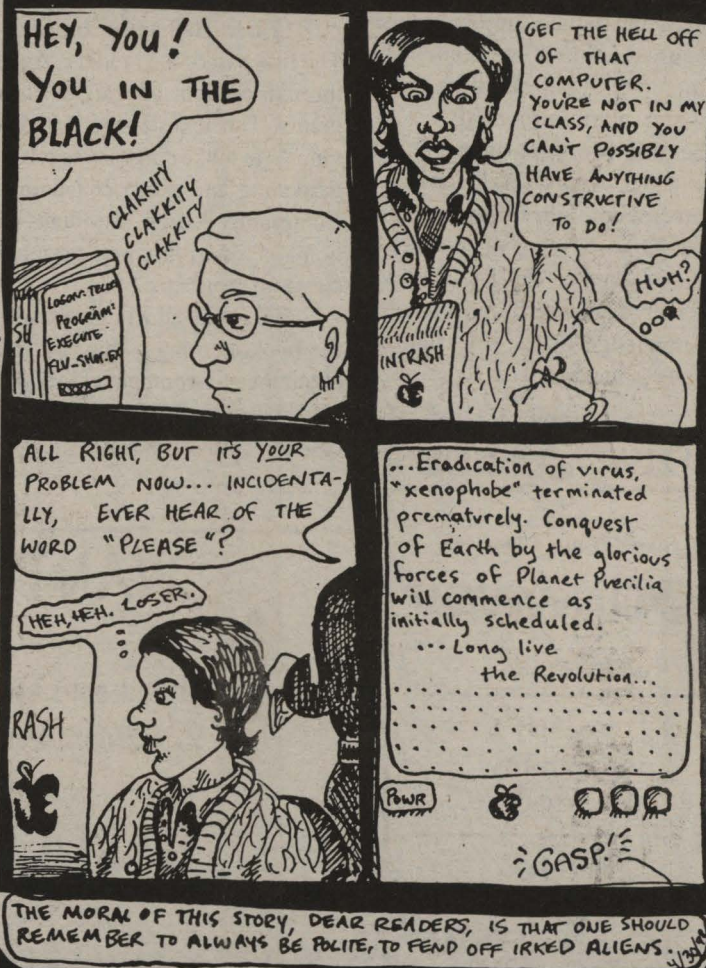 HEY, YOU!
YOU IN THE
BLACK!
CLAKKITY
CLAKKITY
CLAKKITY
SH
LOGON:
PROGRAM:
EXECUTE
FLU_SHOT.EX
GET THE HELL OFF
OF THAT
COMPUTER.
YOU'RE NOT IN MY
CLASS, AND YOU
CAN'T POSSIBLY
HAVE ANYTHING
CONSTRUCTIVE
TO DO!
HUH?
INTRASH
ALL RIGHT, BUT IT'S YOUR
PROBLEM NOW... INCIDENTA-
LLY, EVER HEAR OF THE
WORD "PLEASE"?
HEH, HEH. LOSER.
RASH
...Eradication of virus,
"xenophobe" terminated
prematurely. Conquest
of Earth by the glorious
forces of Planet Puerilia
will commence as
initially scheduled.
... Long live
the Revolution...
POWR
GASP!
THE MORAL OF THIS STORY, DEAR READERS, IS THAT ONE SHOULD
REMEMBER TO ALWAYS BE POLITE, TO FEND OFF IRKED ALIENS.